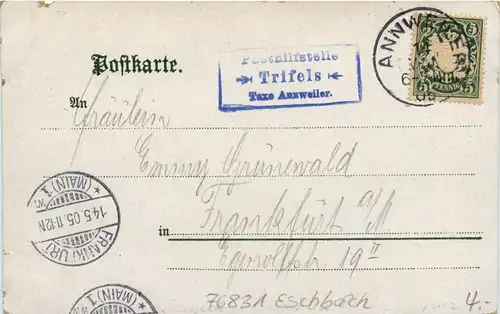 Posthilfstelle
Trifels
Taxe Annweiler.
ANNWEILER
5 PFENNIG 5
Postkarte.
An
Fräulein
Emmy Grünewald
Frankfurt a/M
in
Egenolffstr. 19 II
FRANKFURT
14.5.05.11-12N
* (MAIN) 1
* (MAIN) 1
76831 Eschbach
4.-